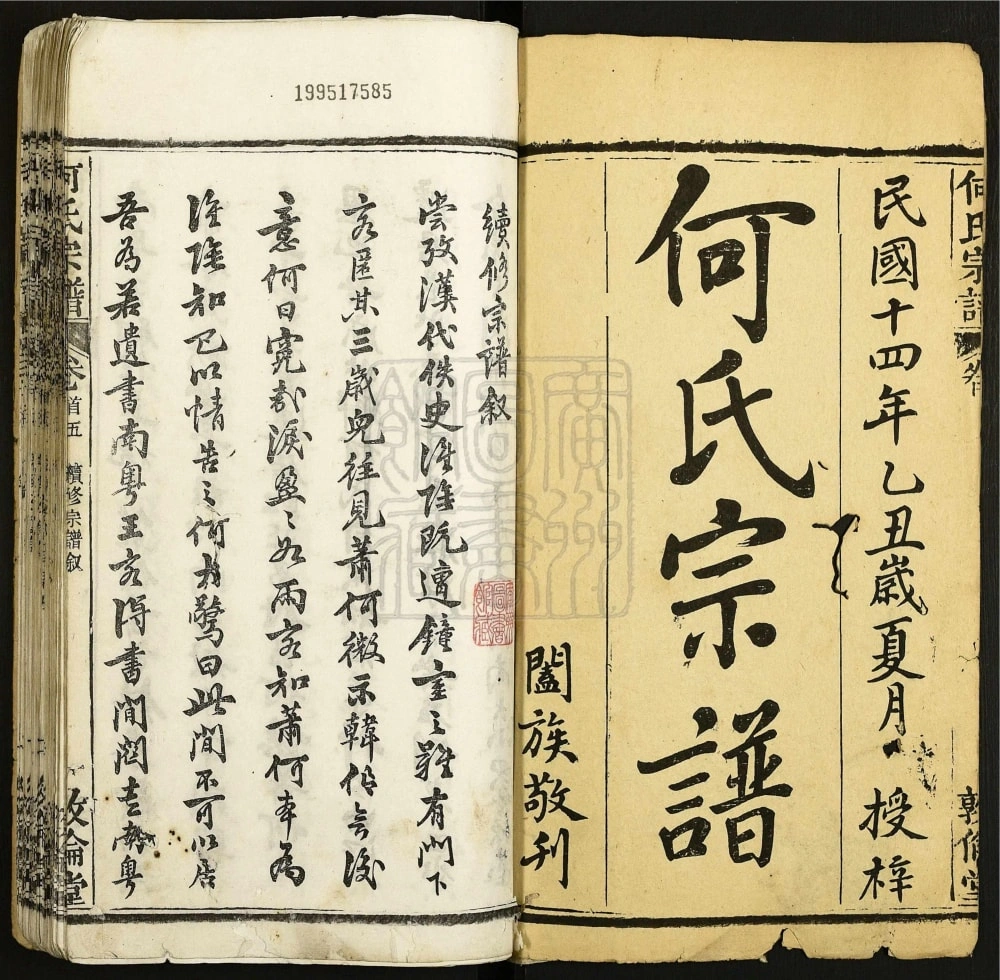 何氏宗譜
民國十四年乙丑歲夏月 授梓
何氏宗譜
闔族敬刊
199517585
續修宗譜叙
嘗攷漢代佚史淮陰既遭鐘室之難有門下
客匿其三歲兒往見蕭何微示韓信無後
意何曰寃哉淚盈〻如雨客知蕭何本為
淮陰知已以情告之何大驚曰此間不可以居
吾為若遺書南粤王客得書間關去南粤
何氏宗譜
卷首五 續修宗譜叙
敦倫堂